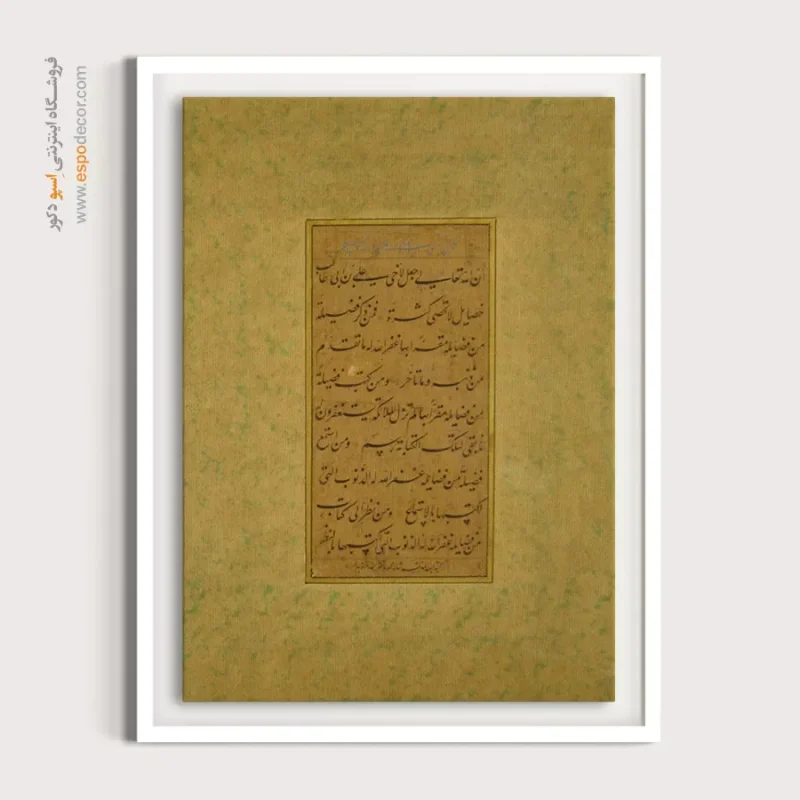 فروشگاه اینترنتی اِسپو دکور
www.espodecor.com
ان الله تعالی جعل لاخی علی بن ابی طالب
فضایل لا تحصی کثرة فمن ذکر فضیلة
من فضایله مقرّا بها غفر الله له ما تقدم
من ذنبه و ما تأخر و من کتب فضیلة
من فضایله مقرّا بها لم تزل الملائکة یستغفرون
ما بقی لتلک الکتابة رسم و من استمع
فضیلة من فضایله غفر الله له الذنوب التی
اکتسبها بالاستماع و من نظر الی کتاب
من فضایله غفر الله له الذنوب التی اکتسبها بالنظر